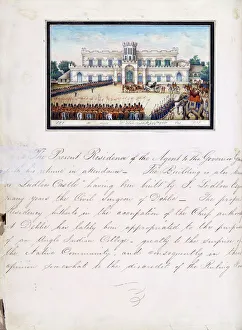 The Present Residence of the Agent to the Governor Gen
to his retinue in attendance - The Building is also known
as Ludlow Castle having been built by S. Ludlow Esq
many years the Civil Surgeon of Dehlie - The proper
Residency whilst in the occupation of the Chief
of Dehlie has lately been appropriated to the purpose
of an Anglo Indian College - greatly to the surprise of
the Native Community, and consequently in their
opinion somewhat to the discredit of the Ruling